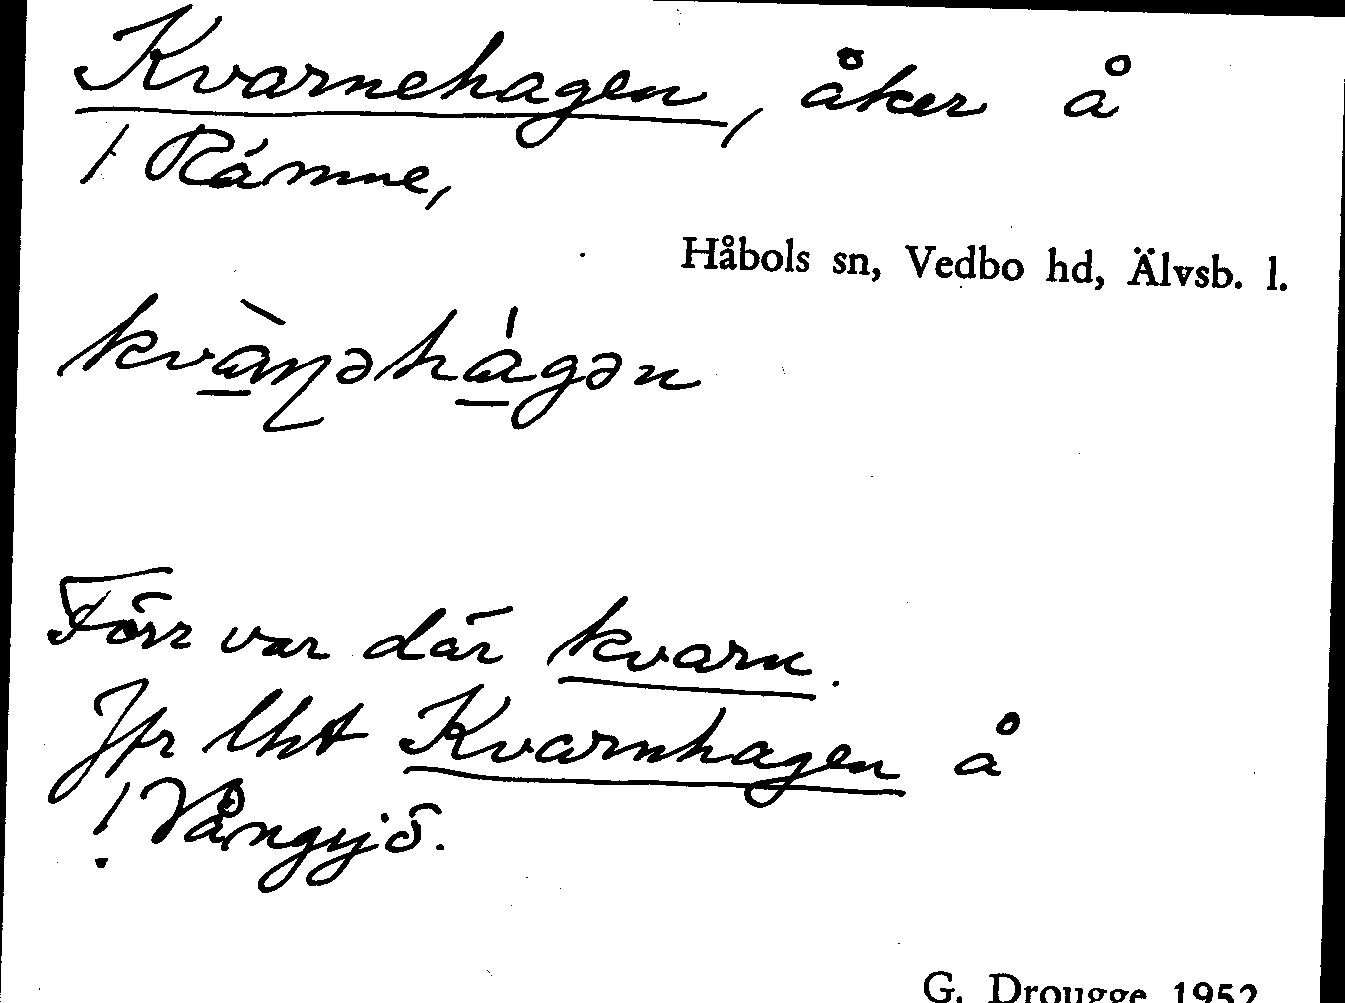 Kvarnehagen, åker å
! Rámne,
Håbols sn, Vedbo hd, Älvsb. l.
kvàɳəhágən
Förr var där kvarn.
Jfr lht Kvarnhagen å
! Vångsjö.
G. Drougge 1952